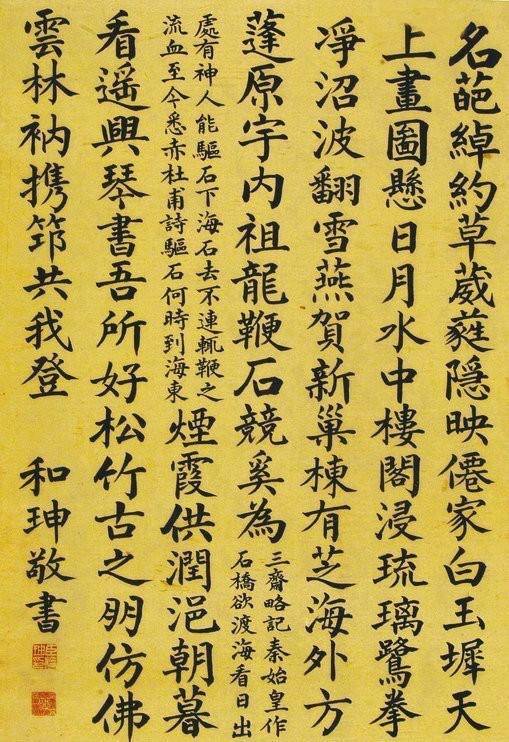 名葩綽約草葳蕤隱映僊家白玉墀天
上畫圖懸日月水中樓閣浸琉璃鷺拳
凈沼波翻雪燕賀新巢棟有芝海外方
蓬原宇內祖龍鞭石競奚為
三齋略記秦始皇作
石橋欲渡海看日出
處有神人能驅石下海石去不連輒鞭之
流血至今悉赤杜甫詩驅石何時到海東
煙霞供潤浥朝暮
看遙興琴書吾所好松竹古之朋仿佛
雲林衲携笻共我登 和珅敬書